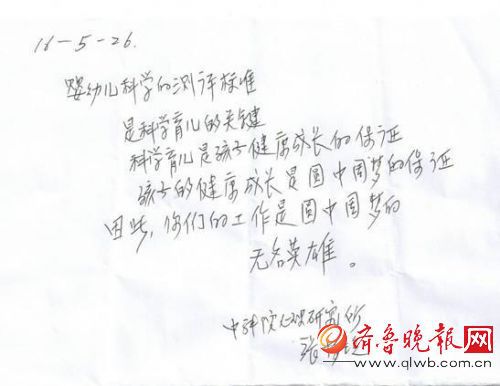 16-5-26.
婴幼儿科学的测评标准
是科学育儿的关键
科学育儿是孩子健康成长的保证
孩子的健康成长是圆中国梦的保证
因此,你们的工作是圆中国梦的
无名英雄。
中科院心理研究所
张
齐鲁晚报网
www.qlwb.com.cn